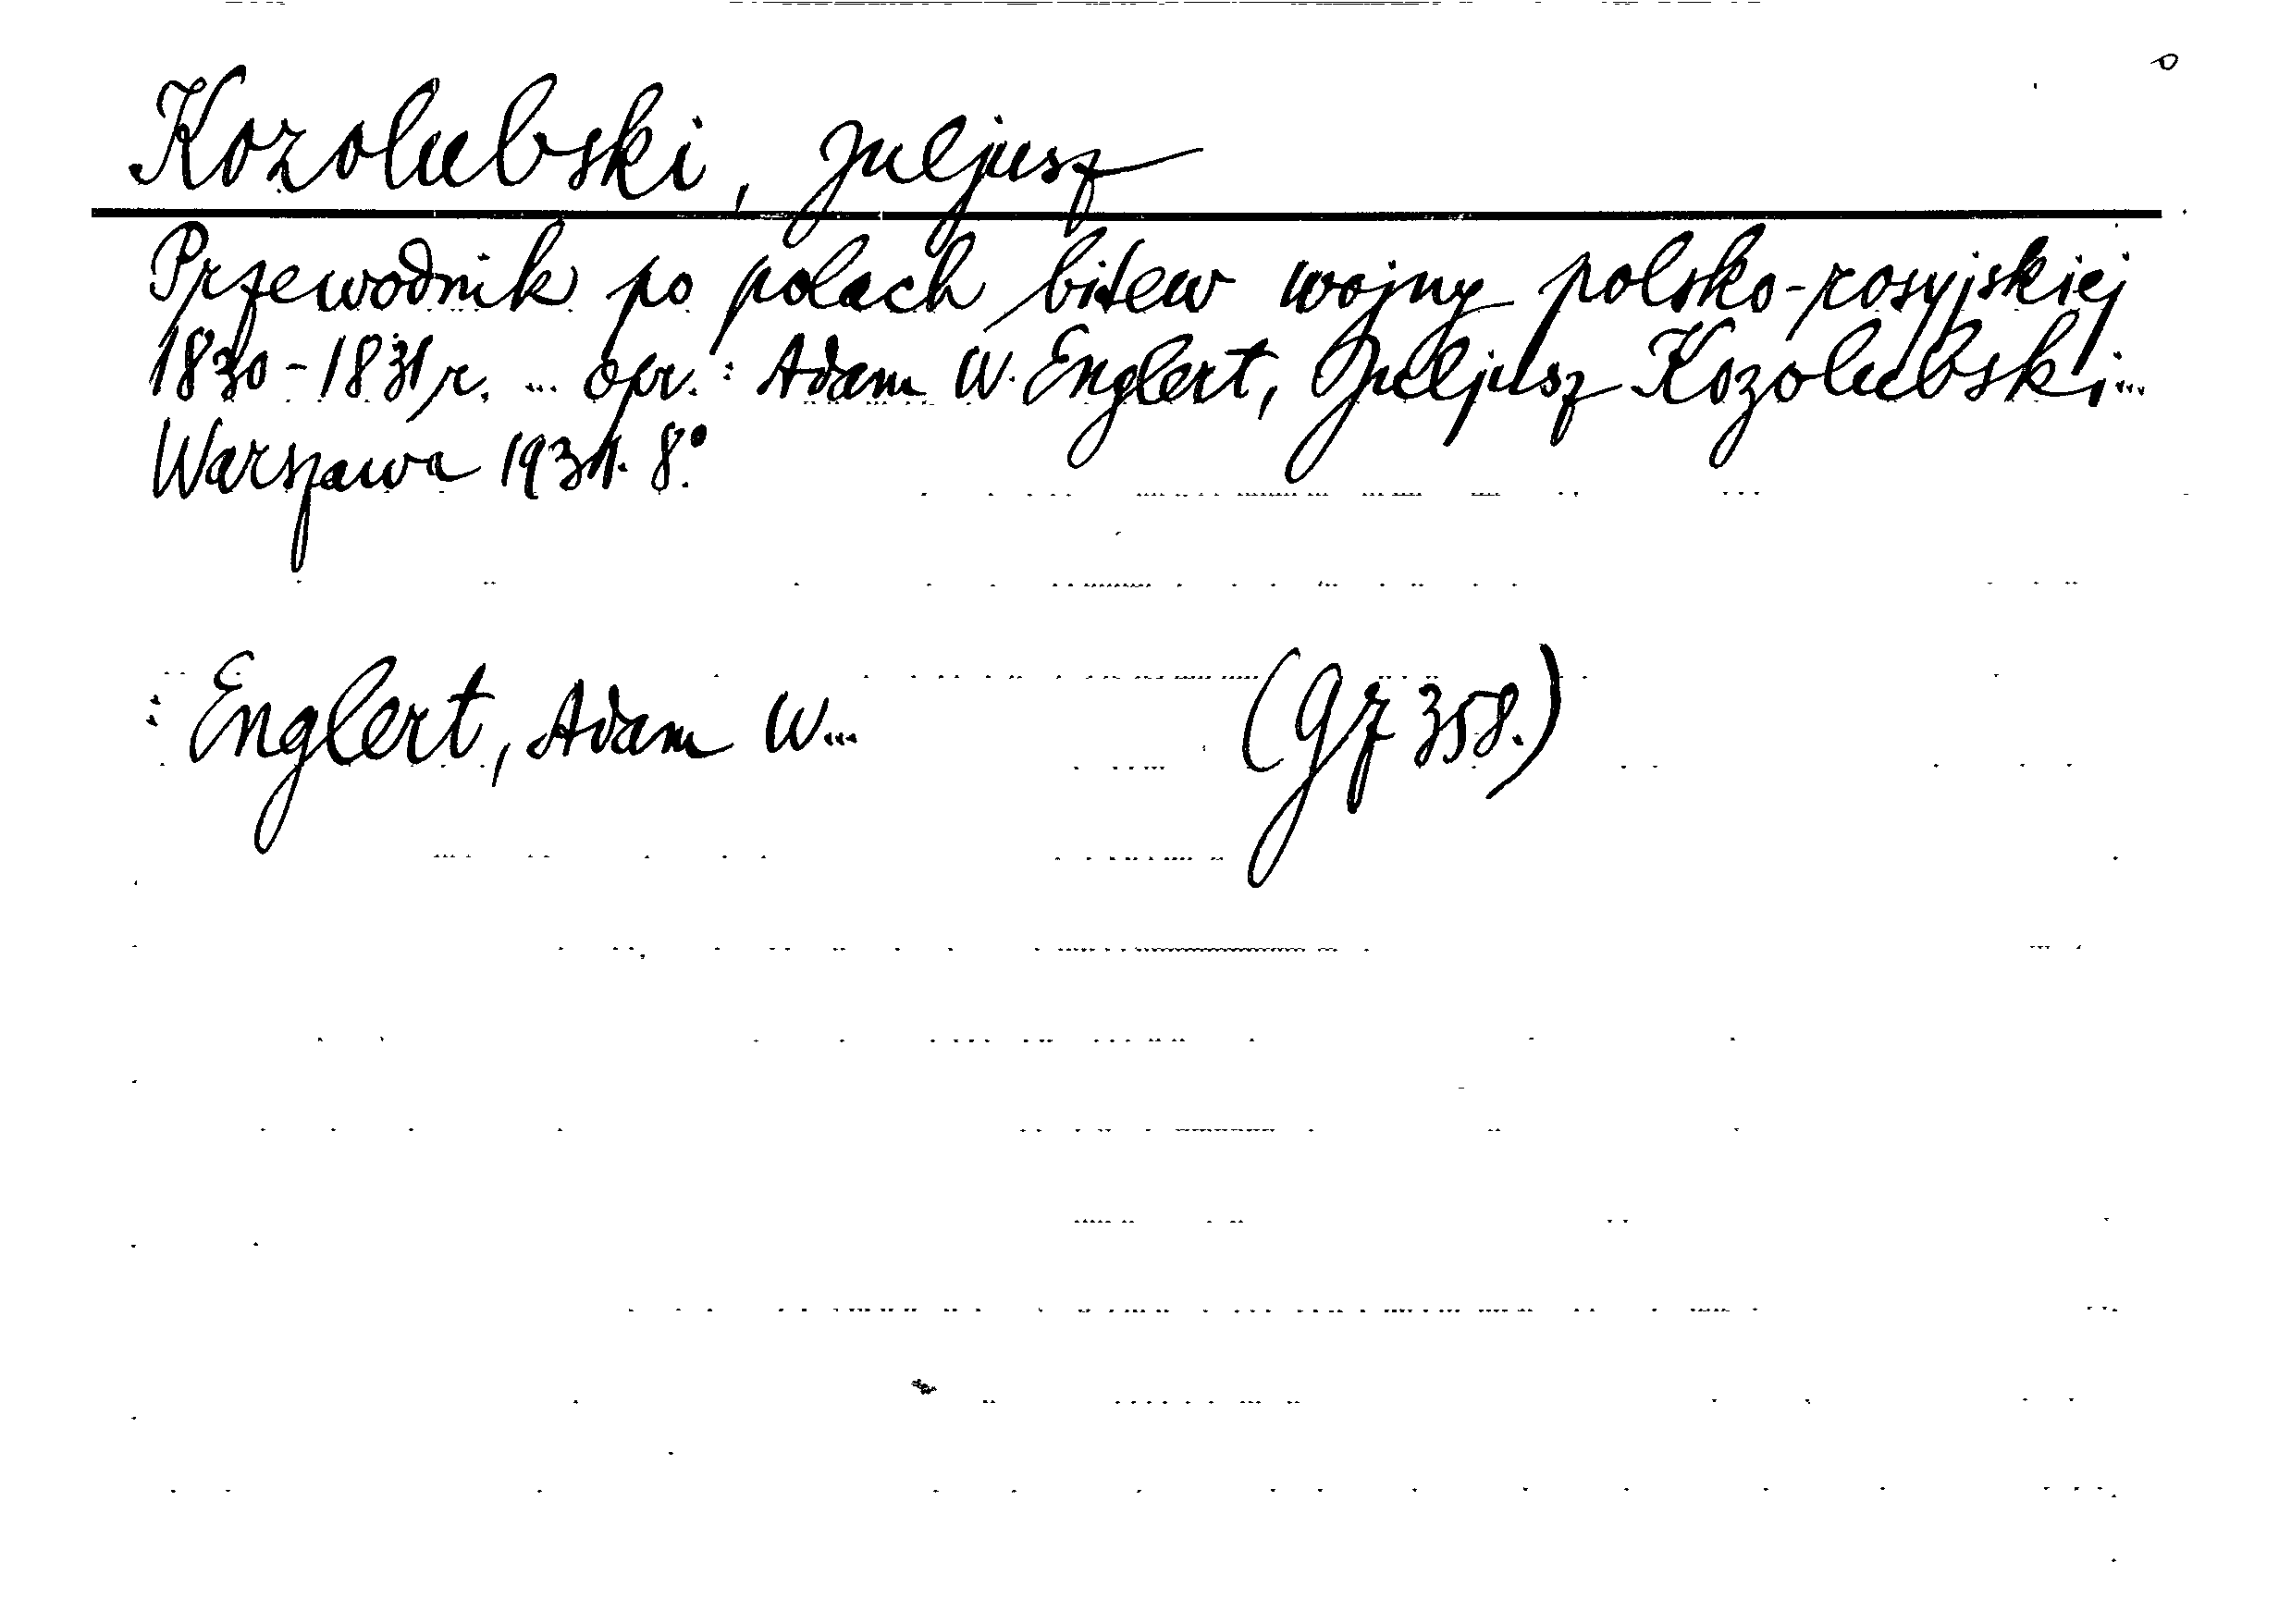 Kozolubski, Juljusz
Przewodnik po polach bitew wojny polsko-rosyjskiej
1830-1831 r. ... opr.: Adam W. Englert, Juljusz Kozolubski...
Warszawa 1931. 8°.
: Englert, Adam W... (gz 358.)